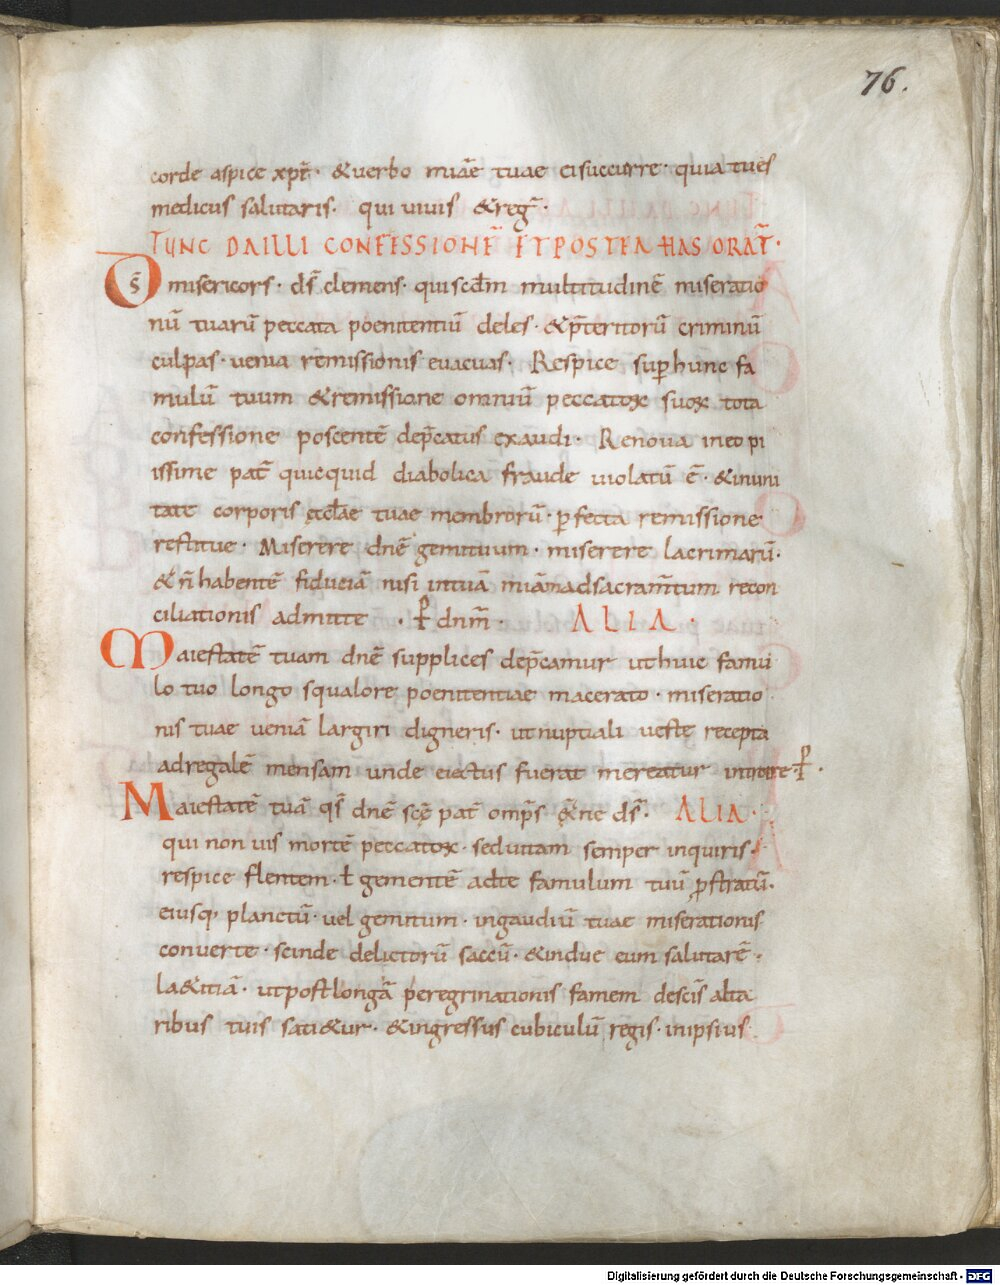 76.
corde aspice xp̄e · & uerbo miāe tuae ei succurre · quia tu es
medicus salutaris · qui uiuis & reḡ ·
TUNC DA ILLI CONFESSIONĒ ET POSTEA HAS ORAT̄ ·
D̄s misericors · d̄s clemens · qui scd̄m multitudinē miseratio
nū tuarū peccata poenitentiū deles · & p̄teritorū criminū
culpas · uenia remissionis euacuas · Respice sup̄ hunc fa
mulū tuum & remissione omniū peccatoꝝ suoꝝ tota
confessione poscentē dep̄catus exaudi · Renoua in eo pi
issime pat̄ quicquid diabolica fraude uiolatū ē · & in uni
tate corporis ęccl̄ae tuae membrorū · ꝑfecta remissione
restitue · Miserere dn̄e gemituum · miserere lacrimarū ·
& n̄ habentē fiduciā nisi in tuā miām ad sacram̄tum recon
ciliationis admitte · P̄ dn̄m · ALIA ·
Maiestatē tuam dn̄e supplices dep̄camur ut huic famu
lo tuo longo squalore poenitentiae macerato · miseratio
nis tuae ueniā largiri digneris · ut nuptiali ueste recepta
ad regalē mensam unde eiectus fuerat mereatur introire · P̄ ·
Maiestatē tuā q̄s dn̄e sc̄e pat̄ omp̄s ę̄ne d̄s · ALIA ·
qui non uis mortē peccatoꝝ · sed uitam semper inquiris ·
respice flentem · ł gementē ad te famulum tuū ꝓstratū ·
eiusq; planctū · uel gemitum · in gaudiū tuae miserationis
conuerte · scinde delictorū saccū · & indue eum salutarē ·
la&itiā · ut post longā peregrinationis famem de sc̄is alta
ribus tuis sati&ur · & ingressus cubiculū regis · in ipsius
Digitalisierung gefördert durch die Deutsche Forschungsgemeinschaft - DFG